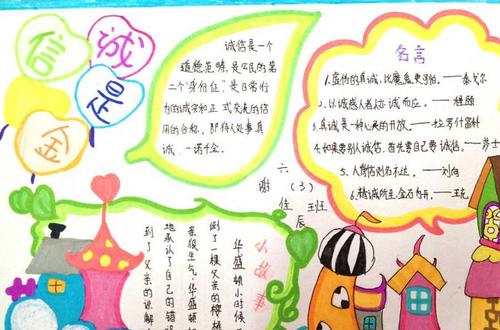 诚
信
是
金
诚信是一个
道德范畴,是公民的第
二个"身份证",是日常行
为的诚实和正式交流的信
用的合称。即待人处事真
诚,一诺千金。
名言
1.虚伪的真诚,比魔鬼更可怕。——泰戈尔
2.以诚感人者,人亦诚而应。——程颐
3.真诚是一种心灵的开放。——拉罗什富科
4.如果要别人诚信,首先要自己要诚信。——莎士
5.人背信则名不达。——刘向
6.精诚所至,金石为开。——王充
六(3)班
谢佳辰
小故事
华盛顿小时候
倒了一棵父亲的樱桃
亲很生气,华盛顿
地承认了自己的错
到了父亲的谅解